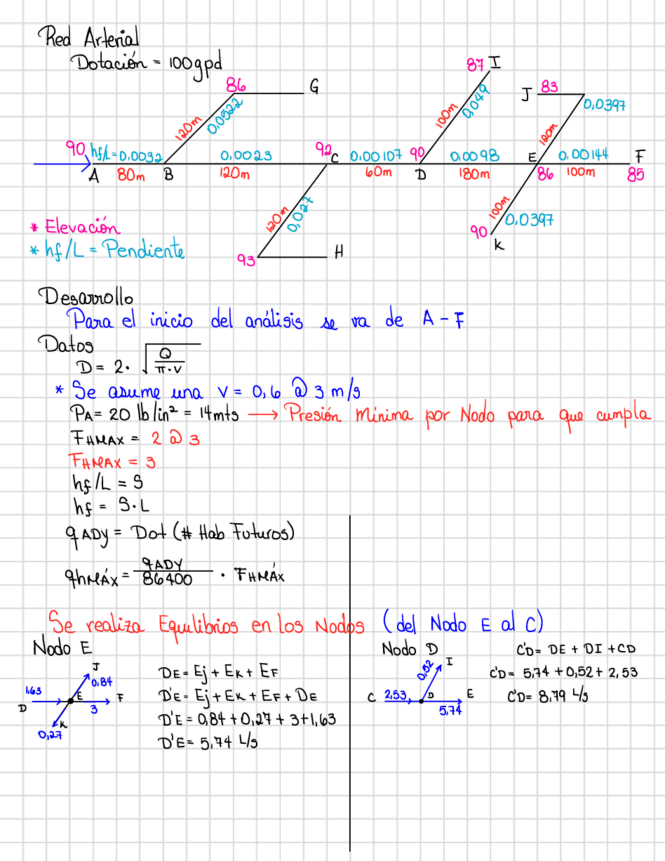 Red Arterial
Dotación = 100gpd
86 G
120m 0,0322
90 hf/L=0.0032 0,0023 92 C 0,00107 90 0,0098 E 0,00144 F
A 80m B 120m 60m D 180m 86 100m 85
87 I
100m 0,049
J 83 0,0397
120m
120m 0,027
93 H
100m 0,0397
90 K
* Elevación
* hf/L = Pendiente
Desarrollo
Para el inicio del análisis se va de A - F
Datos
D = 2. √Q/π.v
* Se asume una v = 0,6 @ 3 m/s
PA = 20 lb/in² = 14mts → Presión mínima por Nodo para que cumpla
FHMAX = 2 @ 3
FHMAX = 3
hf/L = S
hf = S.L
qADY = Dot (# Hab Futuros)
qhMáx = qADY/86400 . FHMÁX
Se realiza Equilibrios en los Nodos (del Nodo E al C)
Nodo E
J
1,63 0,84
D E F
3
K
0,27
DE = Ej + EK + EF
D'E = Ej + EK + EF + DE
D'E = 0,84 + 0,27 + 3 + 1,63
D'E = 5,74 L/s
Nodo D
0,52 I
C 2,53 D E
5,74
C'D = DE + DI + CD
C'D = 5,74 + 0,52 + 2,53
C'D = 8,79 L/s